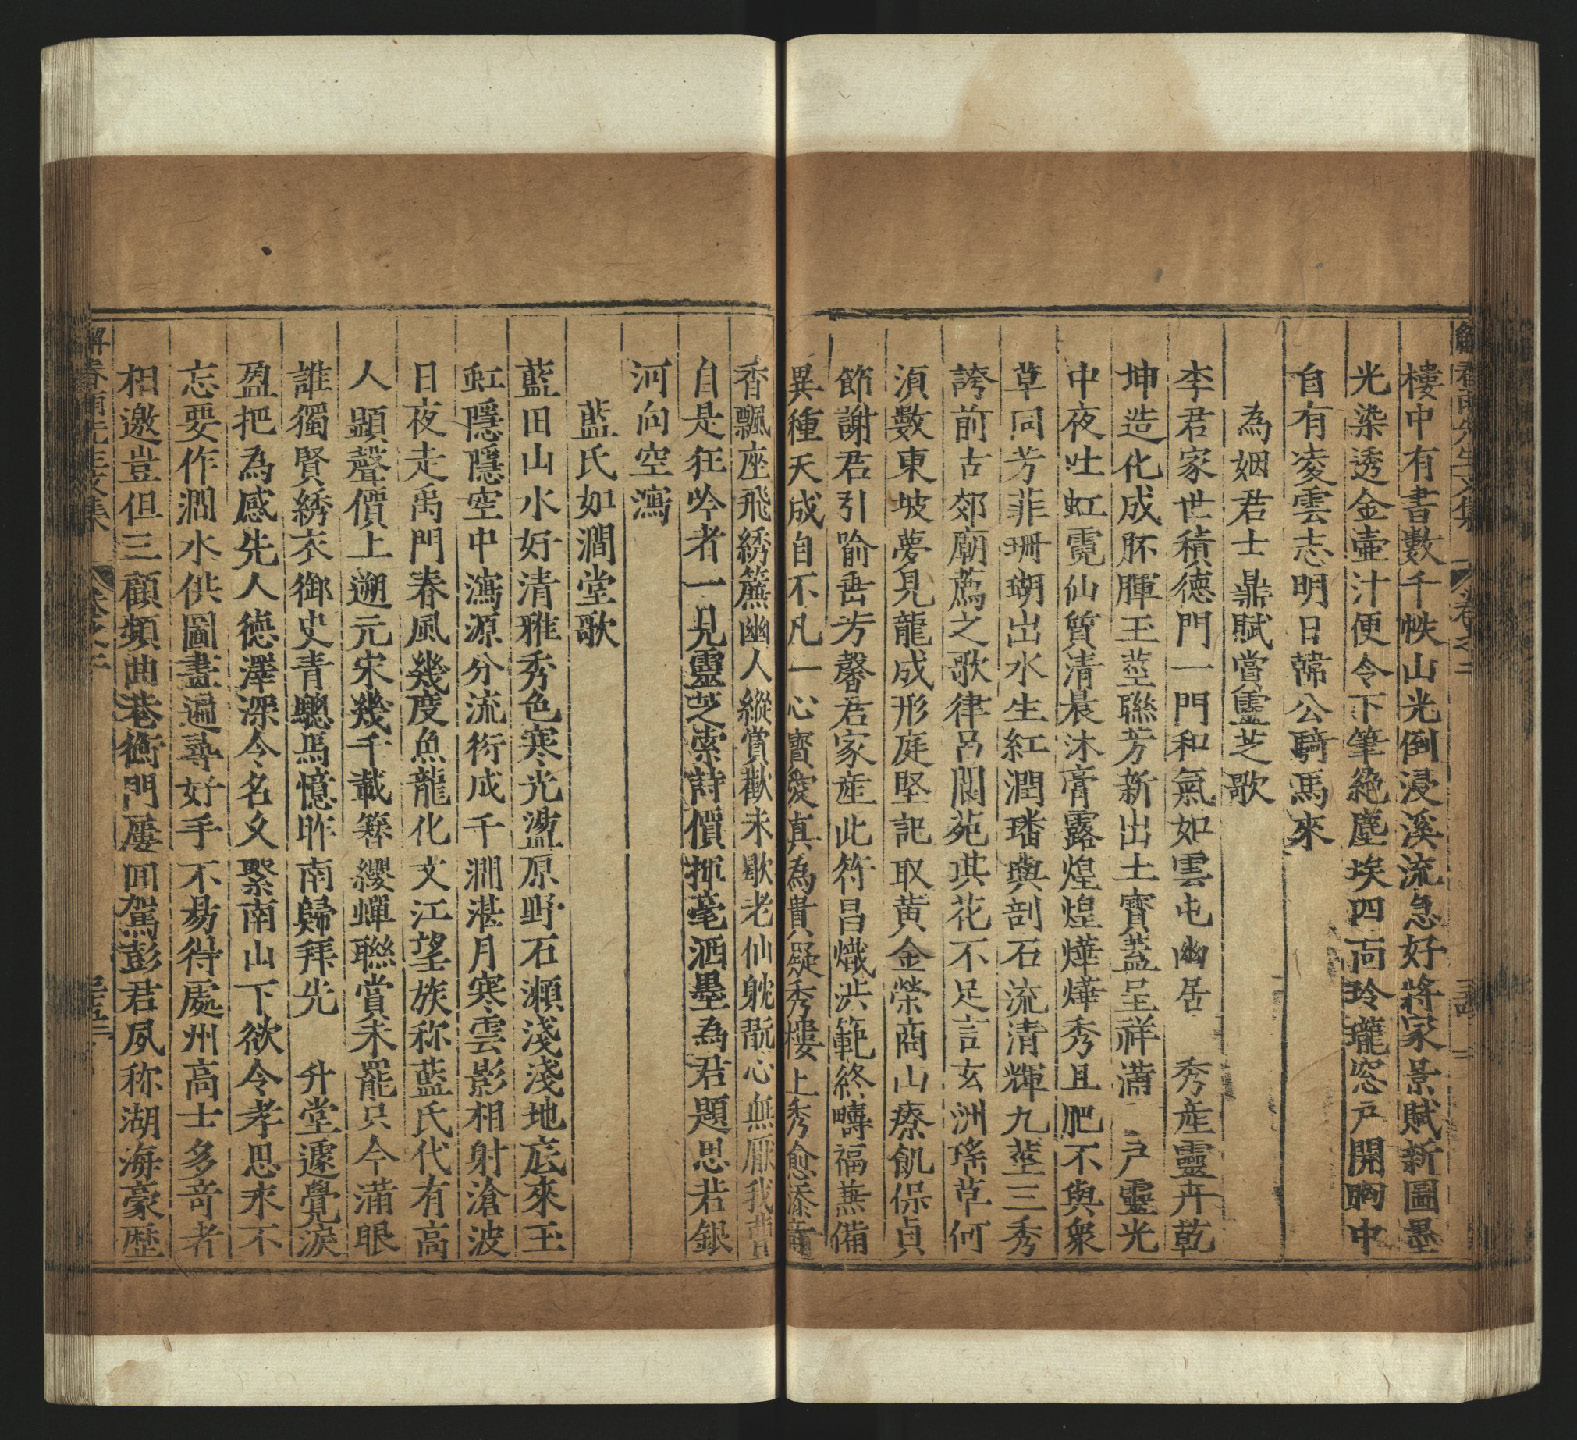 樓中有書數千帙山光倒浸溪流急好將家景賦新圖墨
光染透金壷汁便令下筆絶塵埃四面玲瓏窓戸開胸中
自有凌雲志明日韓公騎馬來
為姻君士鼎賦當靈芝歌
李君家世積德門一門和氣如雲屯幽居 秀産靈卉乾
坤造化成胚腪玉莖聯芳新出土寳蓋呈祥滿 戸靈光
中夜吐虹霓仙質清晨沐膏露煌煌燁燁秀且肥不與衆
草同芳菲珊瑚出水生紅潤璠璵剖石流清輝九莖三秀
誇前古郊廟薦之歌律吕閬苑琪花不足言玄洲瑶草何
湏數東坡夢見龍成形庭堅記取黄金榮商山療飢保貞
節謝君引喻垂芳馨君家産此符昌熾洪範終疇福兼備
異種天成自不凡一心寳愛真為貴凝秀樓上秀愈添
香飄座飛綉簾幽人縱賞歡未歇老仙躭翫心無厭我曹
自是狂吟者一見靈芝索詩價揮毫洒墨為君題思若銀
河向空瀉
藍氏如澗堂歌
藍田山水好清雅秀色寒光盪原野石瀬淺淺地底來玉
虹隱隱空中瀉源分流衍成千澗湛月寒雲影相射滄波
日夜走禹門春風幾度魚龍化文江望族称藍氏代有高
人顕聲價上遡元宋幾千載簪纓蟬聯賞未罷只今滿眼
誰獨賢綉衣御史青驄馬憶昨南歸拜先 升堂遽覺淚
盈把為感先人德澤深令名久繫南山下欲令孝思永不
忘要作澗水供圖畫遍尋好手不易得處州高士多竒者
相邀豈但三顧頻曲巷衡門屢回駕彭君夙称湖海豪歴
解春雨先生文集 卷之二